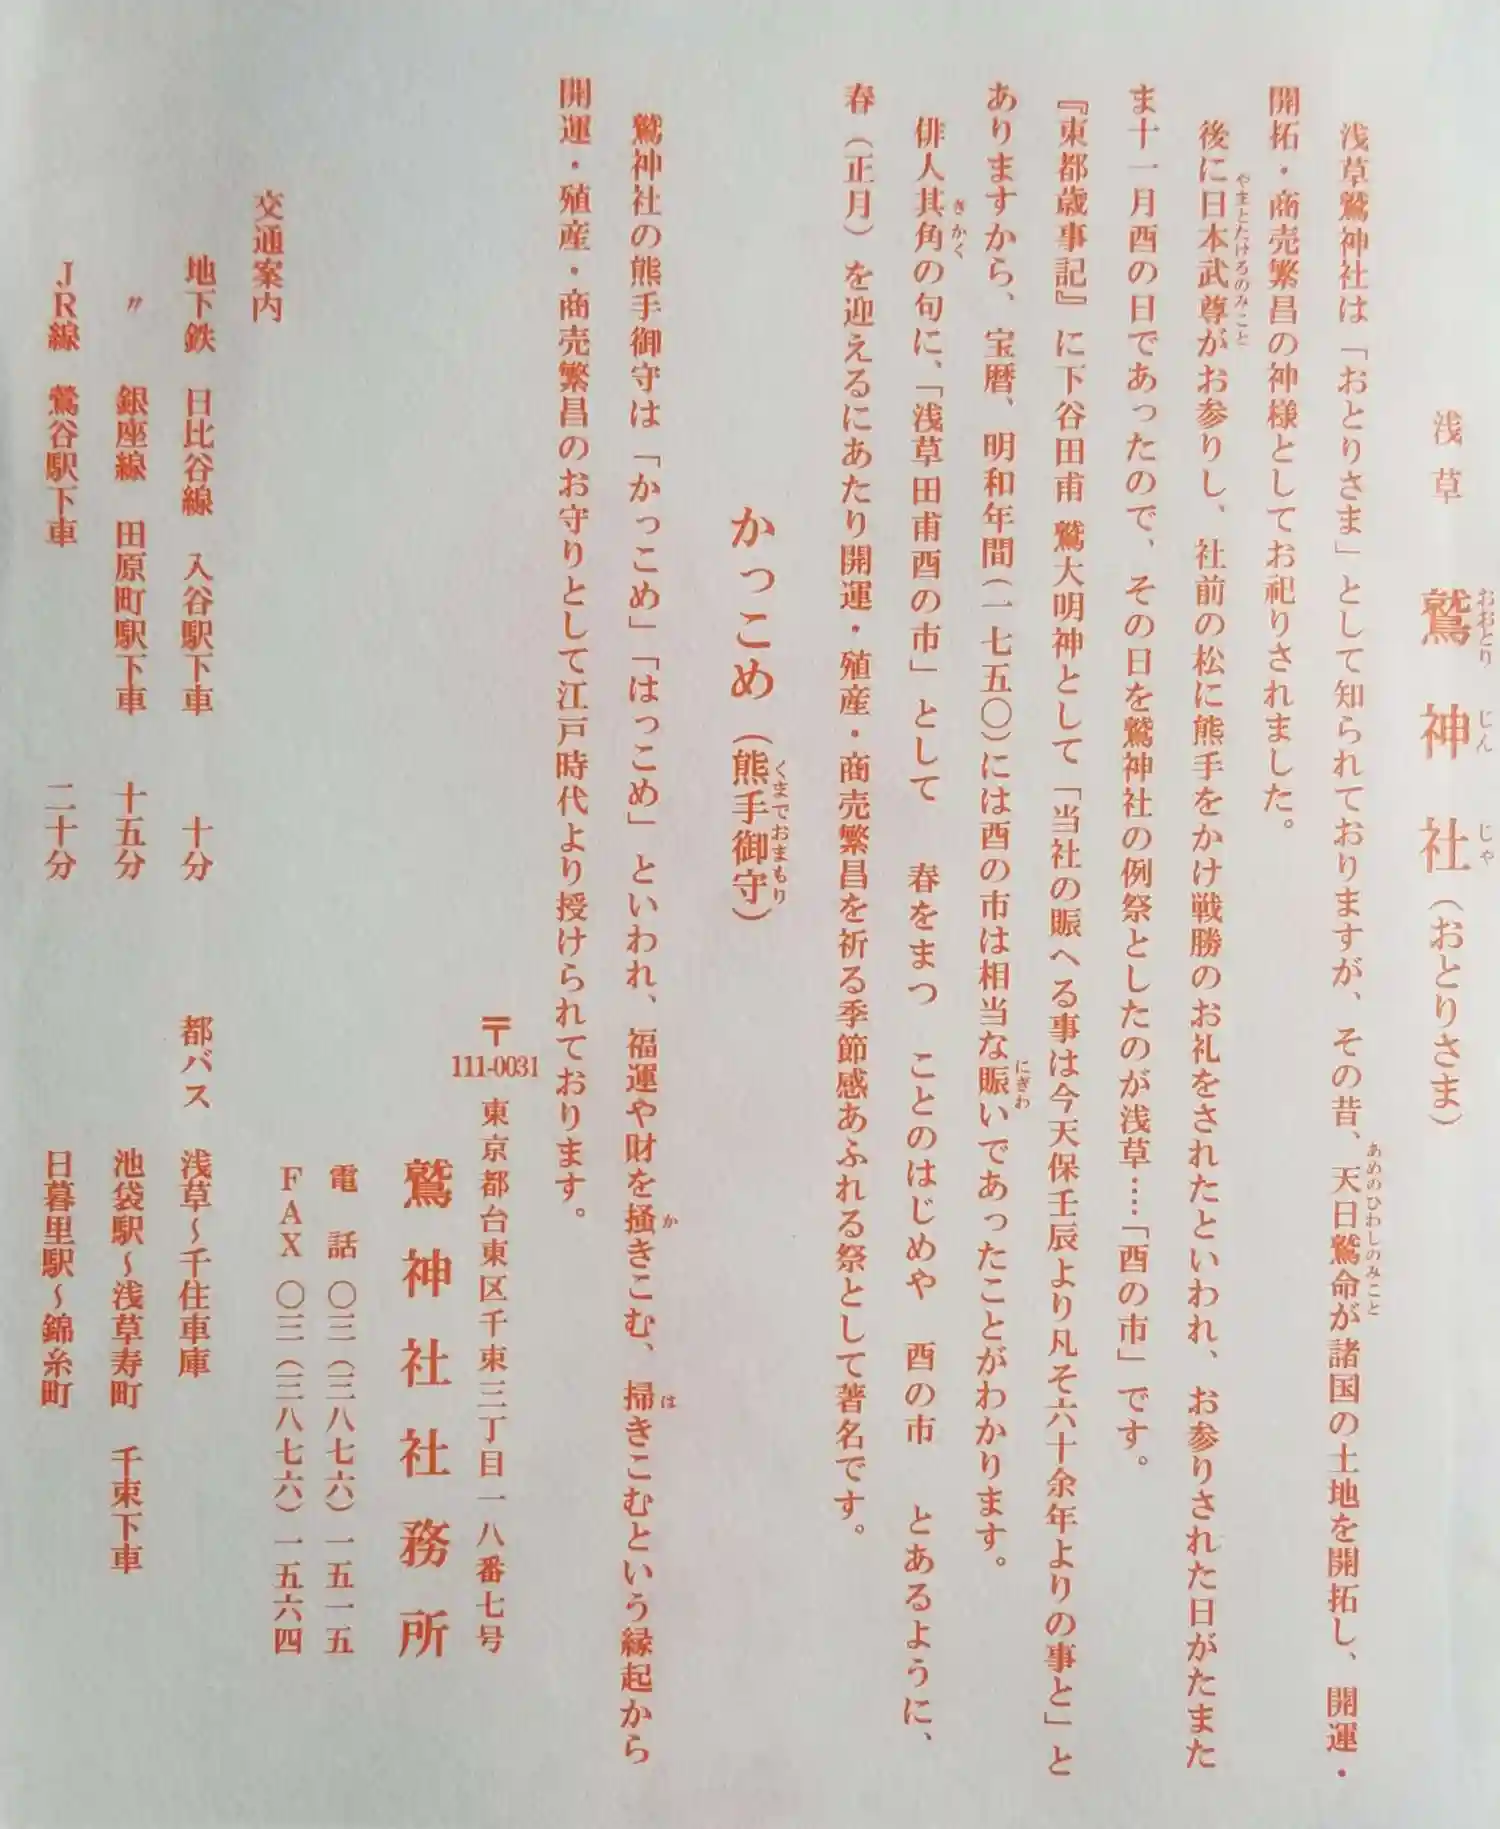 浅草 鷲神社（おとりさま）
おおとり じん じゃ
浅草鷲神社は「おとりさま」として知られておりますが、その昔、天日鷲命が諸国の土地を開拓し、開運・
あめのひわしのみこと
開拓・商売繁昌の神様としてお祀りされました。
後に日本武尊がお参りし、社前の松に熊手をかけ戦勝のお礼をされたといわれ、お参りされた日がたまた
やまとたけるのみこと
ま十一月酉の日であったので、その日を鷲神社の例祭としたのが浅草……「酉の市」です。
『東都歳事記』に下谷田甫 鷲大明神として「当社の賑へる事は今天保壬辰より凡そ六十余年よりの事と」と
ありますから、宝暦、明和年間（一七五〇）には酉の市は相当な賑いであったことがわかります。
にぎわ
俳人其角の句に、「浅草田甫酉の市」として 春をまつ ことのはじめや 酉の市 とあるように、
きかく
春（正月）を迎えるにあたり開運・殖産・商売繁昌を祈る季節感あふれる祭として著名です。
かっこめ（熊手御守）
くまでおまもり
鷲神社の熊手御守は「かっこめ」「はっこめ」といわれ、福運や財を掻きこむ、掃きこむという縁起から
か は
開運・殖産・商売繁昌のお守りとして江戸時代より授けられております。
〒111-0031 東京都台東区千束三丁目一八番七号
鷲神社社務所
電話 〇三（三八七六）一五一五
FAX 〇三（三八七六）一五六四
交通案内
地下鉄 日比谷線 入谷駅下車 十分 都バス 浅草〜千住車庫
〃 銀座線 田原町駅下車 十五分 池袋駅〜浅草寿町 千束下車
JR線 鶯谷駅下車 二十分 日暮里駅〜錦糸町